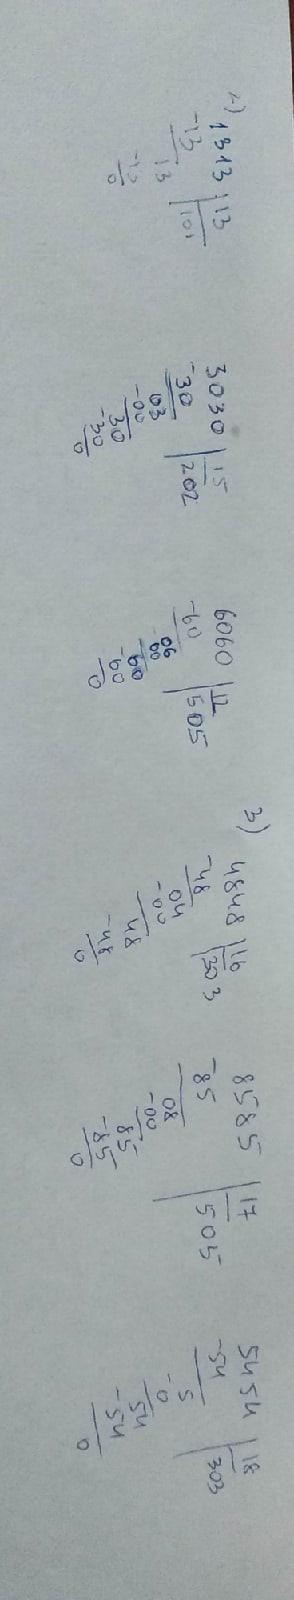 1) 1313 | 13
-13 | 101
13
-13
0
3030 | 15
-30 | 202
03
-00
30
-30
0
6060 | 12
-60 | 505
06
-00
60
-60
0
3) 4848 | 16
-48 | 303
04
-00
48
-48
0
8585 | 17
-85 | 505
08
-00
85
-85
0
5454 | 18
-54 | 303
5
-0
54
-54
0